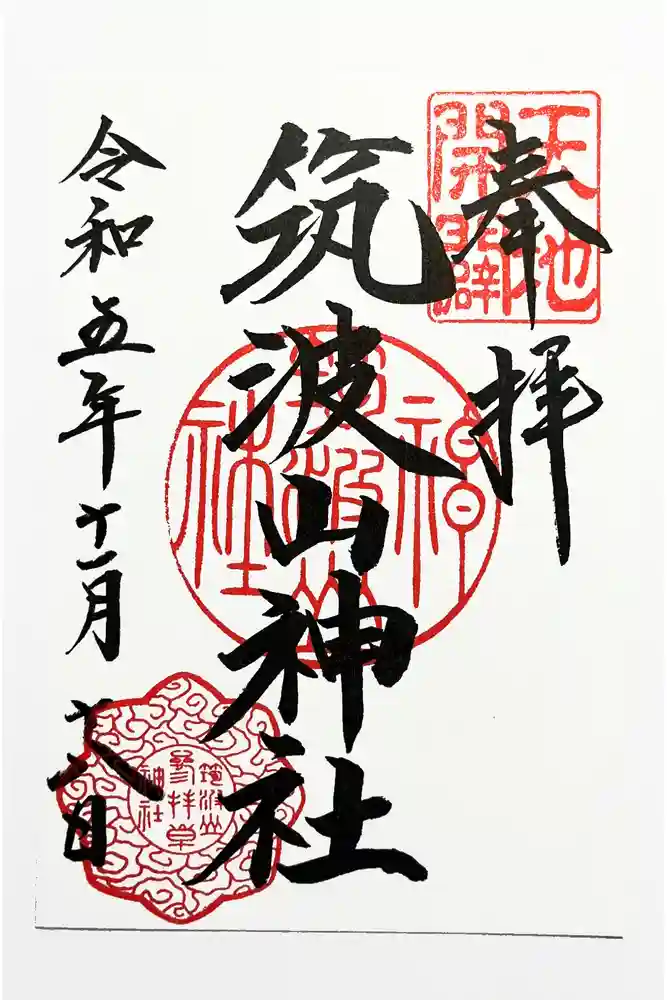 天地
開闢
奉拝
筑波山神社
筑波山
神社
令和五年十一月十八日
筑波山
参拝章
神社